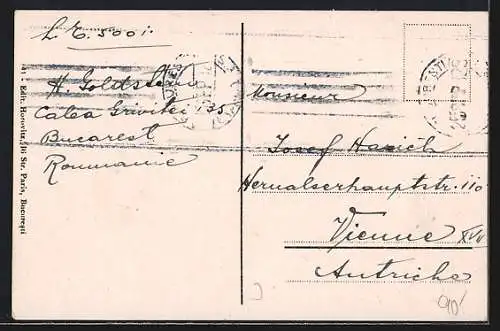 L. E. 500 i.
H. Goldstein
Calea Grivitei 35
Bucarest
Roumanie
41 - Edit. Horowitz, Str. Paris, București
Monsieur
Josef Hanich
Hernalserhauptstr. 110
Vienne XVII
Autriche
90!